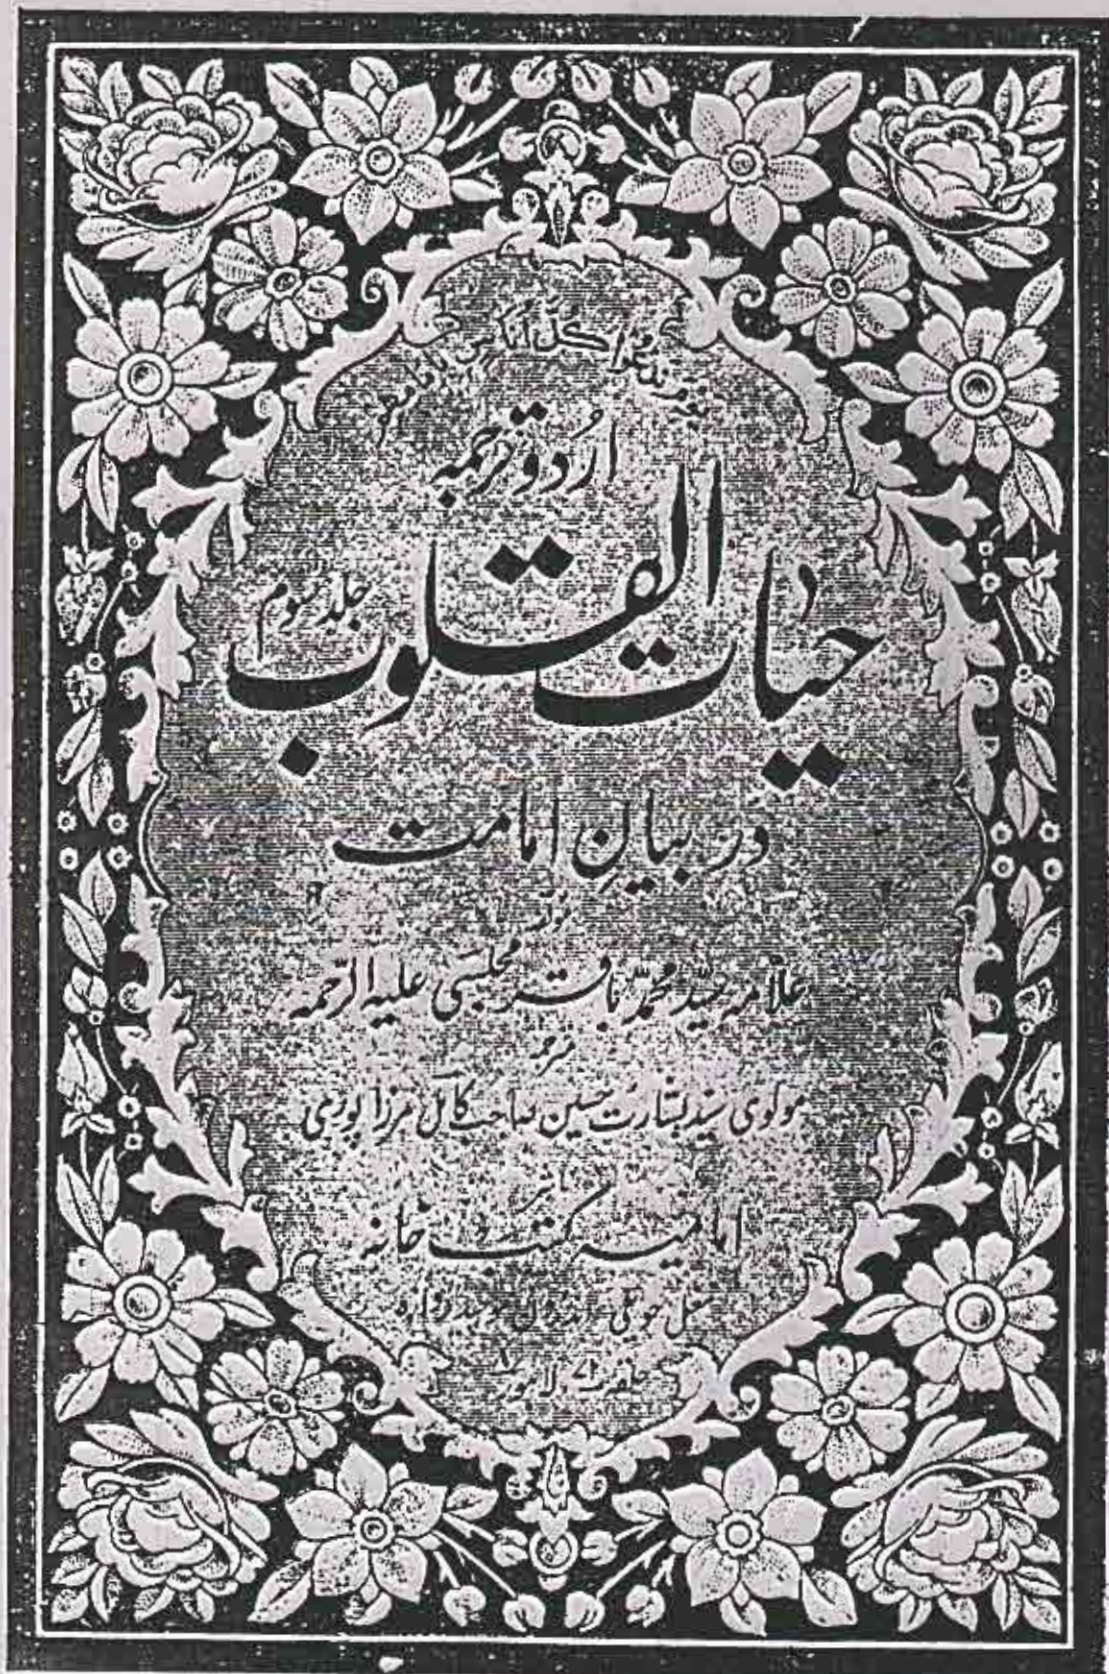 یَوْمَ نَدْعُوْا كُلَّ اُنَاسٍ بِاِمَامِهِمْ
اُردو ترجمہ
حیات القلوب
جلد سوم
در بیانِ امامت
مؤلفہ
علّامہ سیّد محمّد باقر مجلسی علیہ الرّحمہ
مترجمہ
مولوی سیّد بشارت حسین صاحب کامل مرزا پوری
ناشر
امامیہ کتب خانہ
مغل حویلی اندرون موچیدروازہ
حلقہ ۲۱ لاہور